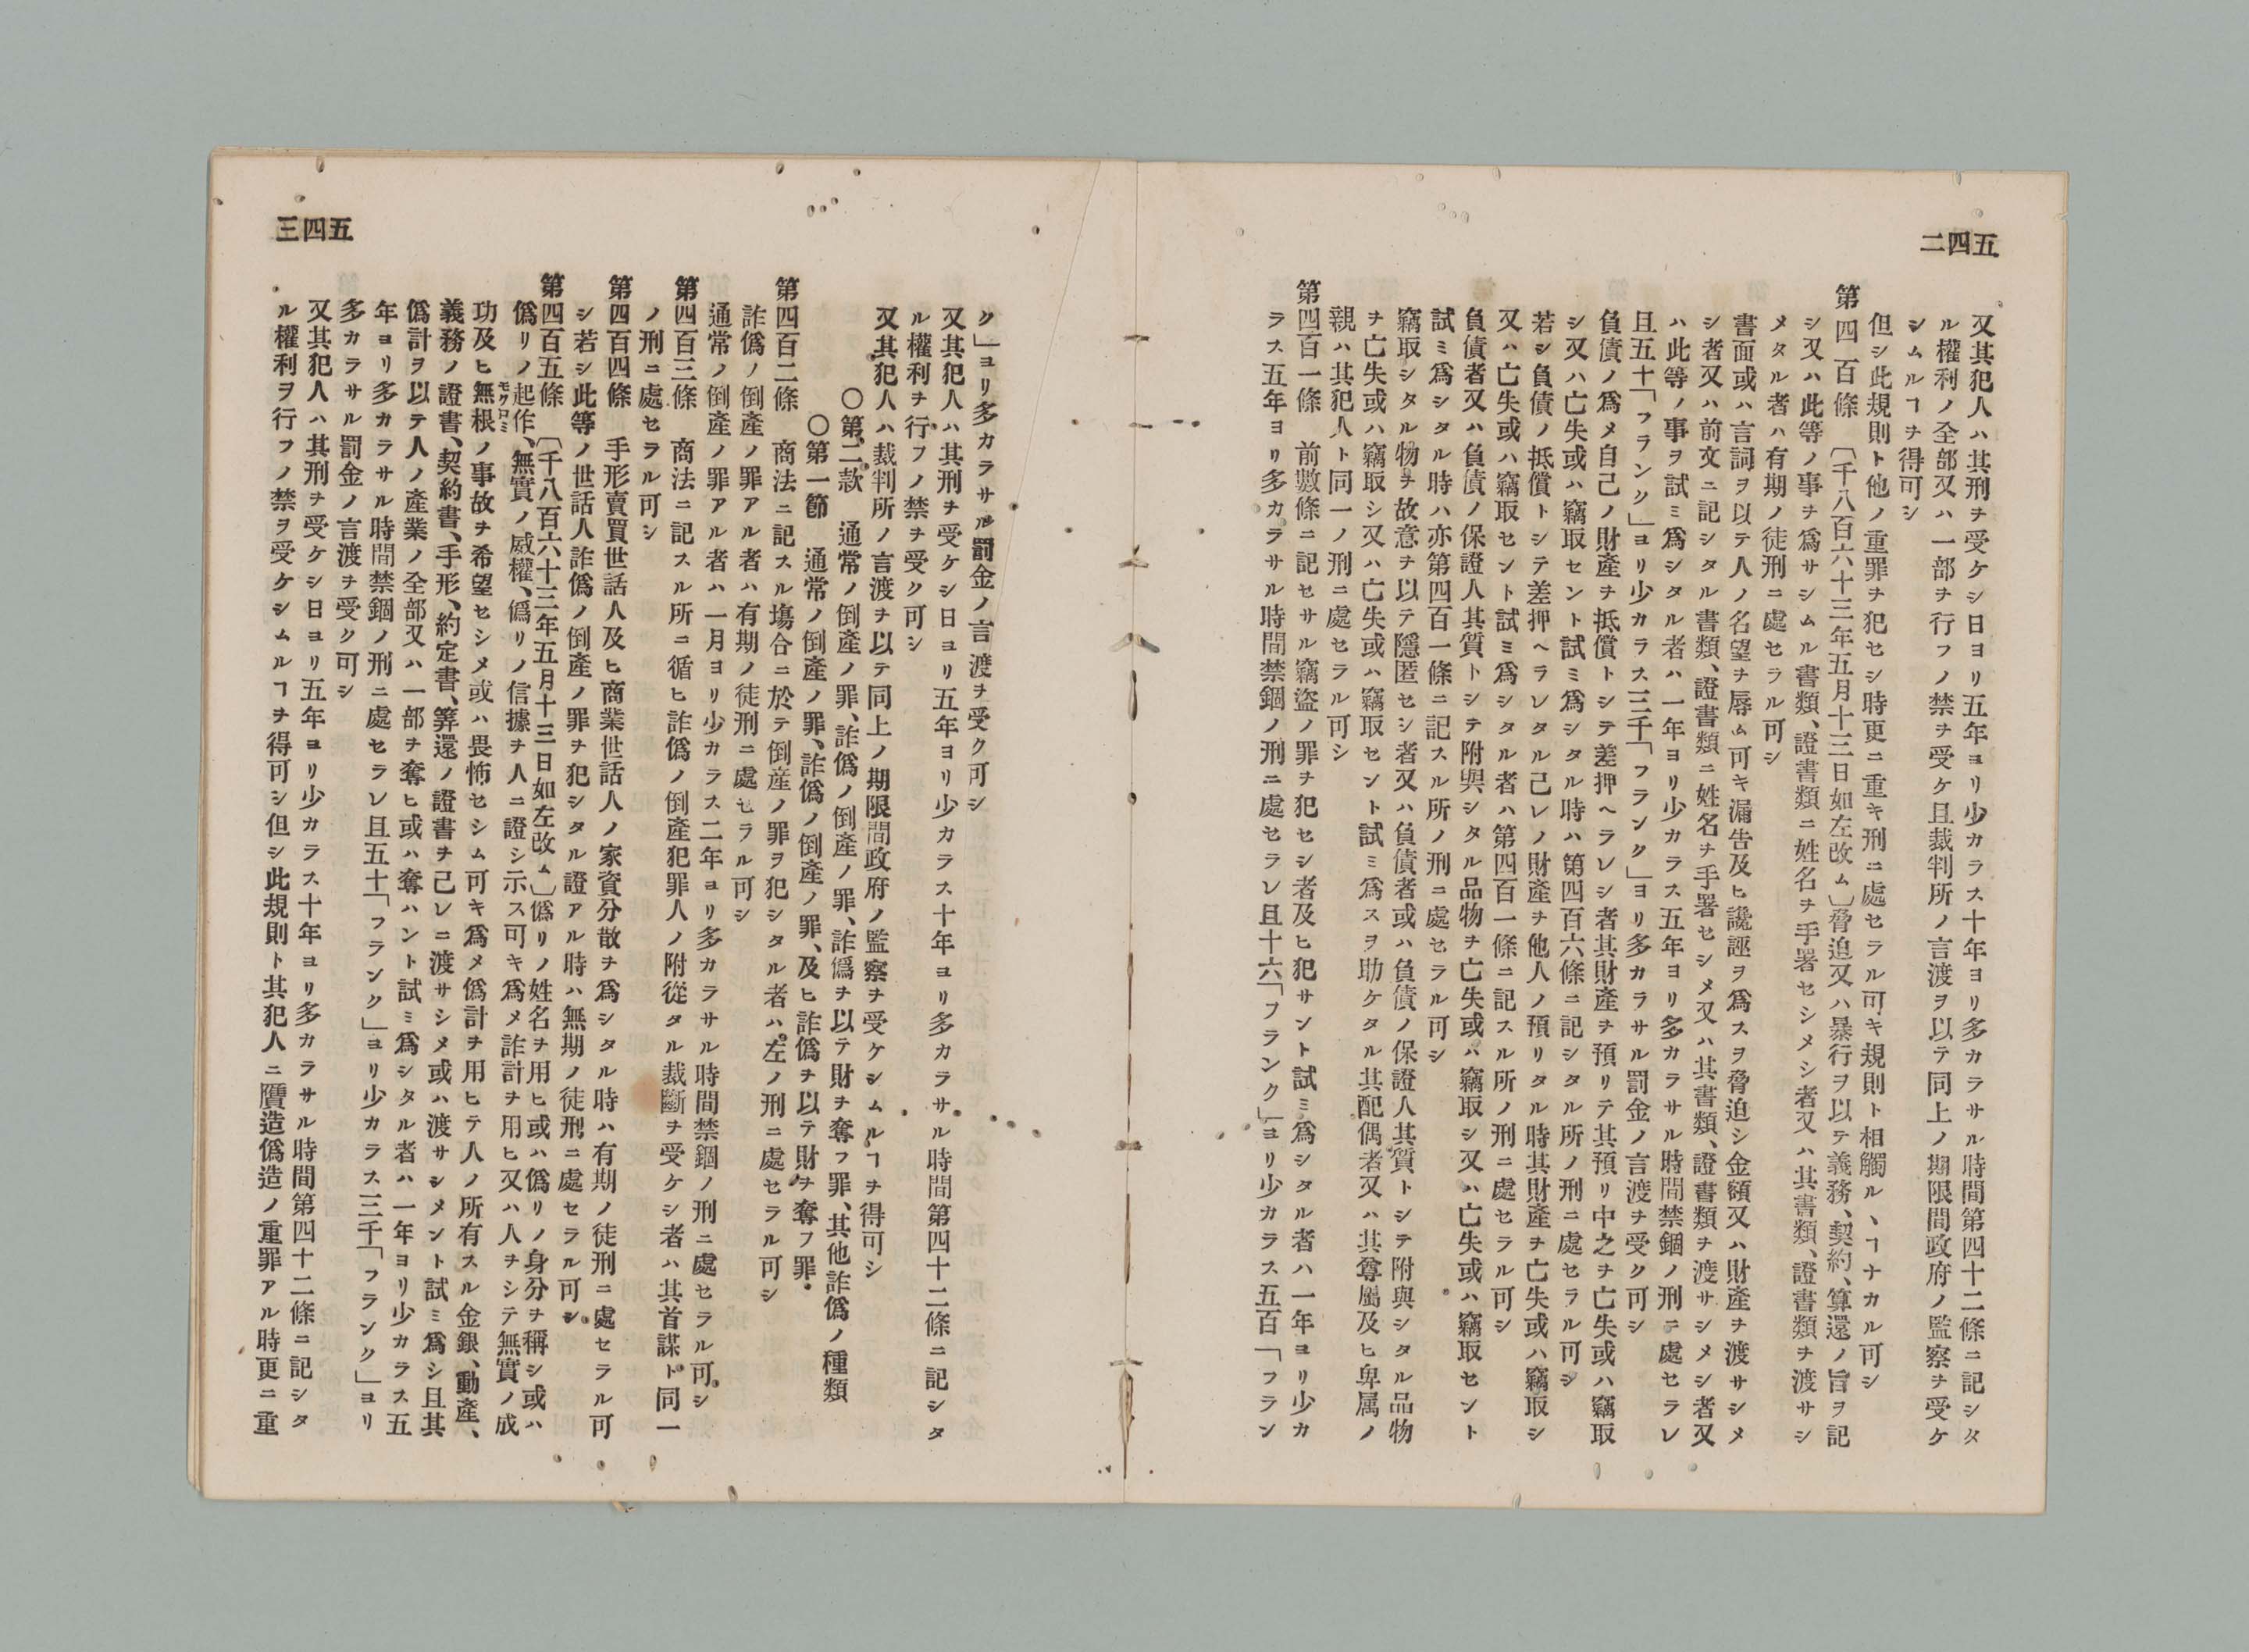 二四五
又其犯人ハ其刑チ受ケシ日ヨリ五年ヨリ少カラス十年ヨリ多カラサル時間第四十二條ニ記シタ
ル權利ノ全部又ハ一部チ行フノ禁チ受ケ且裁判所ノ言渡ヲ以テ同上ノ期限間政府ノ監察チ受ケ
シムルヿチ得可シ
但シ此規則ト他ノ重罪チ犯セシ時更ニ重キ刑ニ處セラル可キ規則ト相觸ル、ヿナカル可シ
第四百條 〔千八百六十三年五月十三日如左改ム〕脅迫又ハ暴行ヲ以テ義務、契約、算還ノ旨ヲ記
シ又ハ此等ノ事チ爲サシムル書類、證書類ニ姓名チ手署セシメシ者又ハ其書類、證書類チ渡サシ
メタル者ハ有期ノ徒刑ニ處セラル可シ
書面或ハ言詞ヲ以テ人ノ名望チ辱ム可キ漏告及ヒ讒誣ヲ爲スヲ脅迫シ金額又ハ財產チ渡サシメ
シ者又ハ前文ニ記シタル書類、證書類ニ姓名チ手署セシメ又ハ其書類、證書類チ渡サシメシ者又
ハ此等ノ事ヲ試ミ爲シタル者ハ一年ヨリ少カラス五年ヨリ多カラサル時間禁錮ノ刑ニ處セラレ
且五十「フランク」ヨリ少カラス三千「フランク」ヨリ多カラサル罰金ノ言渡チ受ク可シ
負債ノ爲メ自己ノ財產チ抵償トシテ差押ヘラレシ者其財產チ預リテ其預リ中之チ亡失或ハ竊取
シ又ハ亡失或ハ竊取セント試ミ爲シタル時ハ第四百六條ニ記シタル所ノ刑ニ處セラル可シ
若シ負債ノ抵償トシテ差押ヘラレタル己レノ財產チ他人ノ預リタル時其財產チ亡失或ハ竊取シ
又ハ亡失或ハ竊取セント試ミ爲シタル者ハ第四百一條ニ記スル所ノ刑ニ處セラル可シ
負債者又ハ負債ノ保證人其質トシテ附與シタル品物チ亡失或ハ竊取シ又ハ亡失或ハ竊取セント
試ミ爲シタル時ハ亦第四百一條ニ記スル所ノ刑ニ處セラル可シ
竊取シタル物チ故意チ以テ隱匿セシ者又ハ負債者或ハ負債ノ保證人其質トシテ附與シタル品物
チ亡失或ハ竊取シ又ハ亡失或ハ竊取セント試ミ爲スヲ助ケタル其配偶者又ハ其尊屬及ヒ卑属ノ
親ハ其犯人ト同一ノ刑ニ處セラル可シ
第四百一條 前數條ニ記セサル竊盜ノ罪チ犯セシ者及ヒ犯サント試ミ爲シタル者ハ一年ヨリ少カ
ラス五年ヨリ多カラサル時間禁錮ノ刑ニ處セラレ且十六「フランク」ヨリ少カラス五百「フラン
三四五
ク」ヨリ多カラサル罰金ノ言渡ヲ受ク可シ
又其犯人ハ其刑チ受ケシ日ヨリ五年ヨリ少カラス十年ヨリ多カラサル時間第四十二條ニ記シタ
ル權利チ行フノ禁チ受ク可シ
又其犯人ハ裁判所ノ言渡チ以テ同上ノ期限間政府ノ監察チ受ケシムルヿヲ得可シ
〇第二款 通常ノ倒產ノ罪、詐僞ノ倒產ノ罪、詐僞チ以テ財チ奪フ罪、其他詐僞ノ種類
〇第一節 通常ノ倒產ノ罪、詐僞ノ倒產ノ罪、及ヒ詐僞チ以テ財チ奪フ罪
第四百二條 商法ニ記スル塲合ニ於テ倒産ノ罪ヲ犯シタル者ハ左ノ刑ニ處セラル可シ
詐僞ノ倒產ノ罪アル者ハ有期ノ徒刑ニ處セラル可シ
通常ノ倒產ノ罪アル者ハ一月ヨリ少カラス二年ヨリ多カラサル時間禁錮ノ刑ニ處セラル可シ
第四百三條 商法ニ記スル所ニ循ヒ詐僞ノ倒產犯罪人ノ附從タル裁斷ヲ受ケシ者ハ其首謀ト同一
ノ刑ニ處セラル可シ
第四百四條 手形賣買世話人及ヒ商業世話人ノ家資分散チ爲シタル時ハ有期ノ徒刑ニ處セラル可
シ若シ此等ノ世話人詐僞ノ倒產ノ罪チ犯シタル證アル時ハ無期ノ徒刑ニ處セラル可シ
第四百五條 〔千八百六十三年五月十三日如左改ム〕僞リノ姓名チ用ヒ或ハ僞リノ身分チ稱シ或ハ
僞リノ起作モクロミ、無實ノ威權、僞リノ信據チ人ニ證シ示ス可キ爲メ詐計チ用ヒ又ハ人チシテ無實ノ成
功及ヒ無根ノ事故チ希望セシメ或ハ畏怖セシム可キ爲メ僞計チ用ヒテ人ノ所有スル金銀、動產、
義務ノ證書、契約書、手形、約定書、算還ノ證書チ己レニ渡サシメ或ハ渡サシメント試ミ爲シ且其
僞計ヲ以テ人ノ產業ノ全部又ハ一部チ奪ヒ或ハ奪ハント試ミ爲シタル者ハ一年ヨリ少カラス五
年ヨリ多カラサル時間禁錮ノ刑ニ處セラレ且五十「フランク」ヨリ少カラス三千「フランク」ヨリ
多カラサル罰金ノ言渡チ受ク可シ
又其犯人ハ其刑チ受ケシ日ヨリ五年ヨリ少カラス十年ヨリ多カラサル時間第四十二條ニ記シタ
ル權利ヲ行フノ禁ヲ受ケシムルヿチ得可シ但シ此規則ト其犯人ニ贋造僞造ノ重罪アル時更ニ重